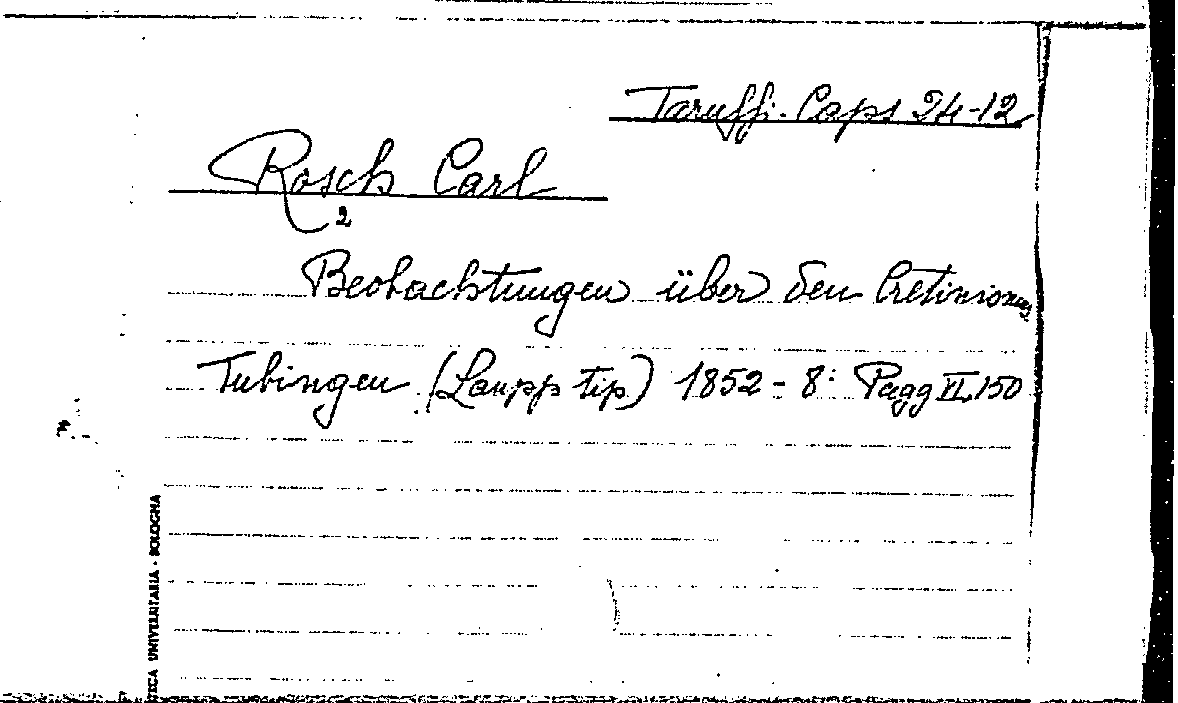 Taruffi. Caps 24-12
Rosch Carl
2
Beobachtungen über den Cretinismus
Tubingen (Laupp tip) 1852 - 8: Pagg II, 150
TECA UNIVERSITARIA - BOLOGNA